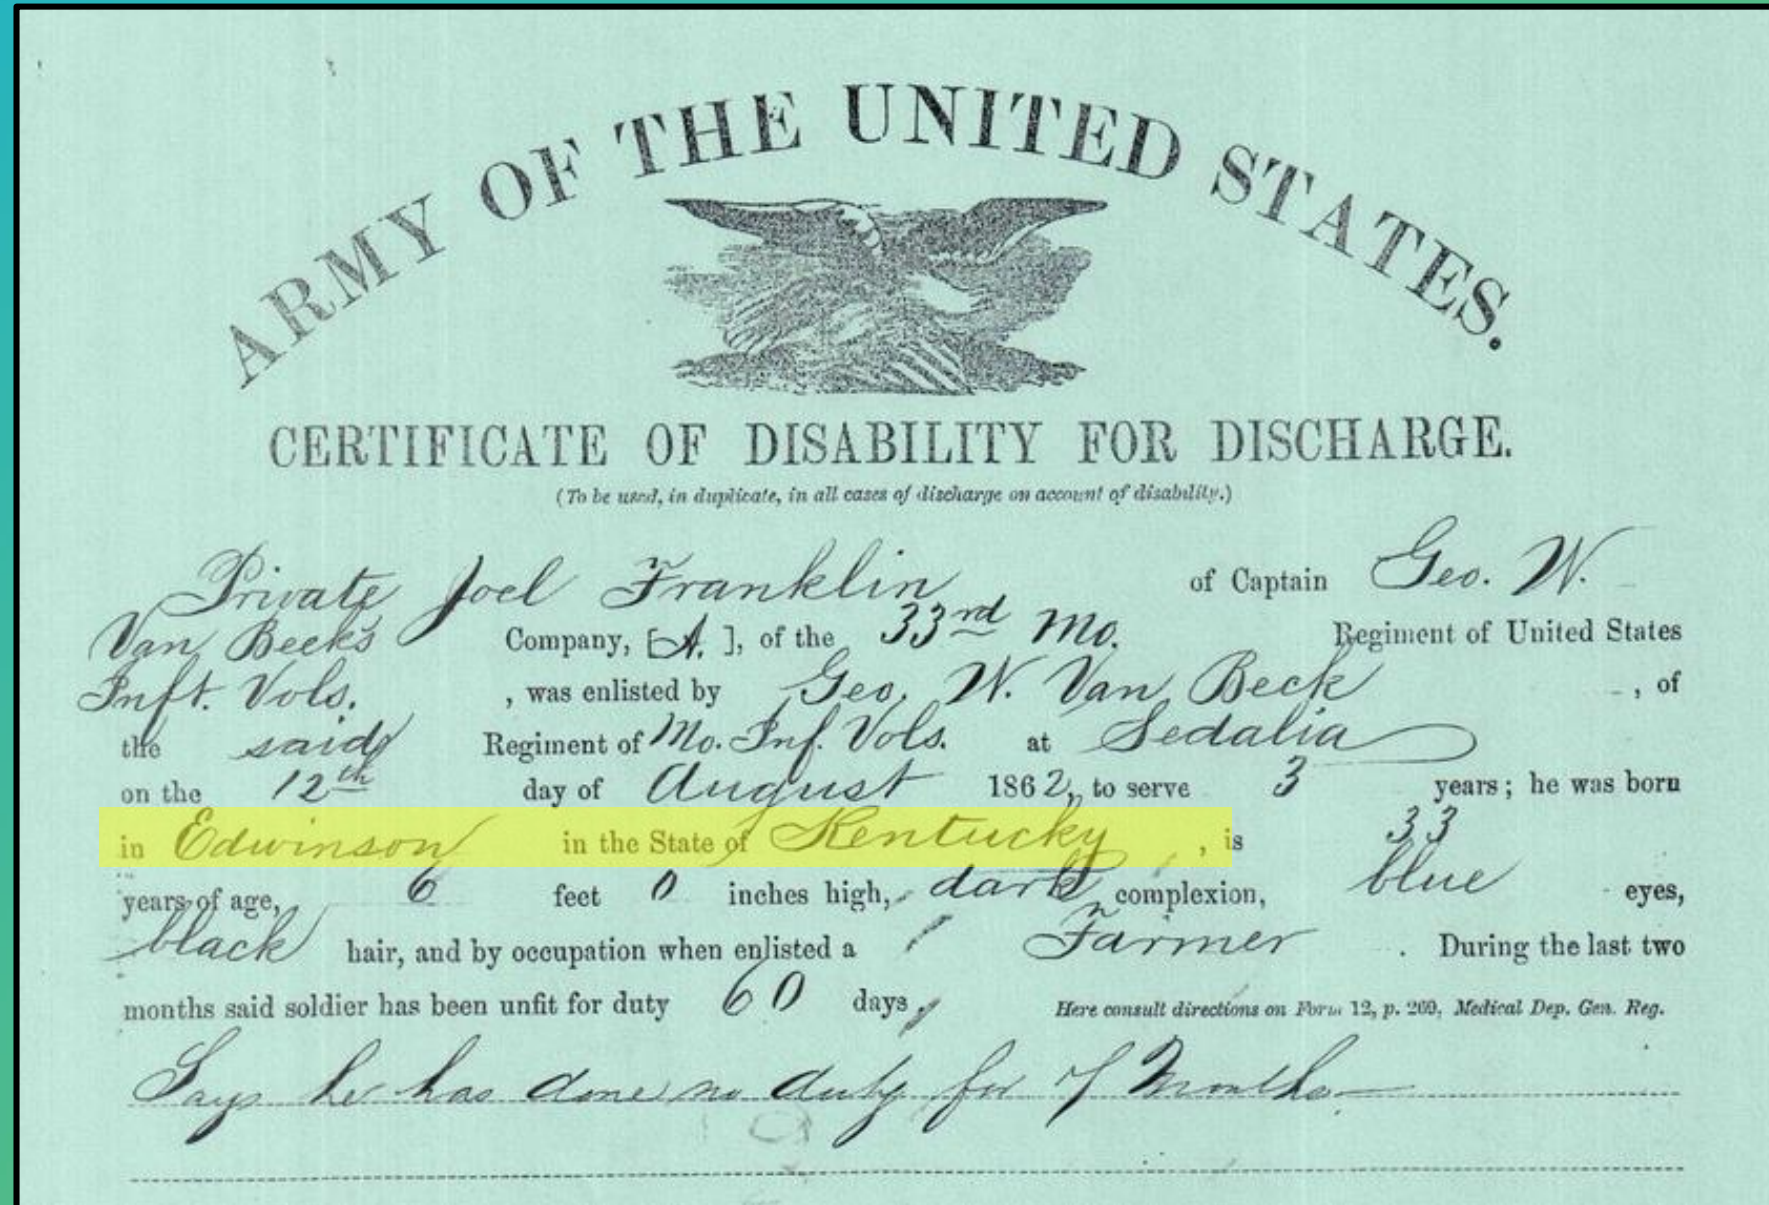 ARMY OF THE UNITED STATES.
CERTIFICATE OF DISABILITY FOR DISCHARGE.
(To be used, in duplicate, in all cases of discharge on account of disability.)
Private Joel Franklin of Captain Geo. W.
Van Beck's Company, [A.], of the 33rd Mo. Regiment of United States
Inft. Vols. , was enlisted by Geo. W. Van Beck , of
the said Regiment of Mo. Inf. Vols. at Sedalia
on the 12th day of August 1862, to serve 3 years; he was born
in Edwinson in the State of Kentucky , is 33
years of age, 6 feet 0 inches high, dark complexion, blue eyes,
black hair, and by occupation when enlisted a Farmer . During the last two
months said soldier has been unfit for duty 60 days, Here consult directions on Form 12, p. 269, Medical Dep. Gen. Reg.
Says he has done no duty for 7 Months